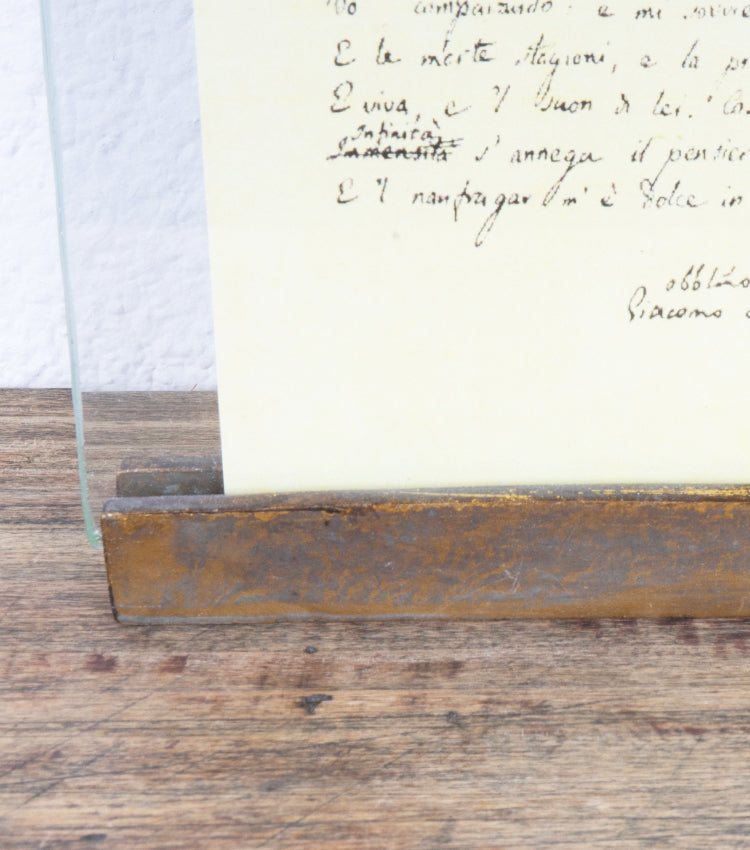 Vo comparando: e mi sovvie
E le morte stagioni, e la pr
E viva, e 'l suon di lei. Cos
Infinità
Immensità s' annega il pensier
E 'l naufragar m' è dolce in
Giacomo